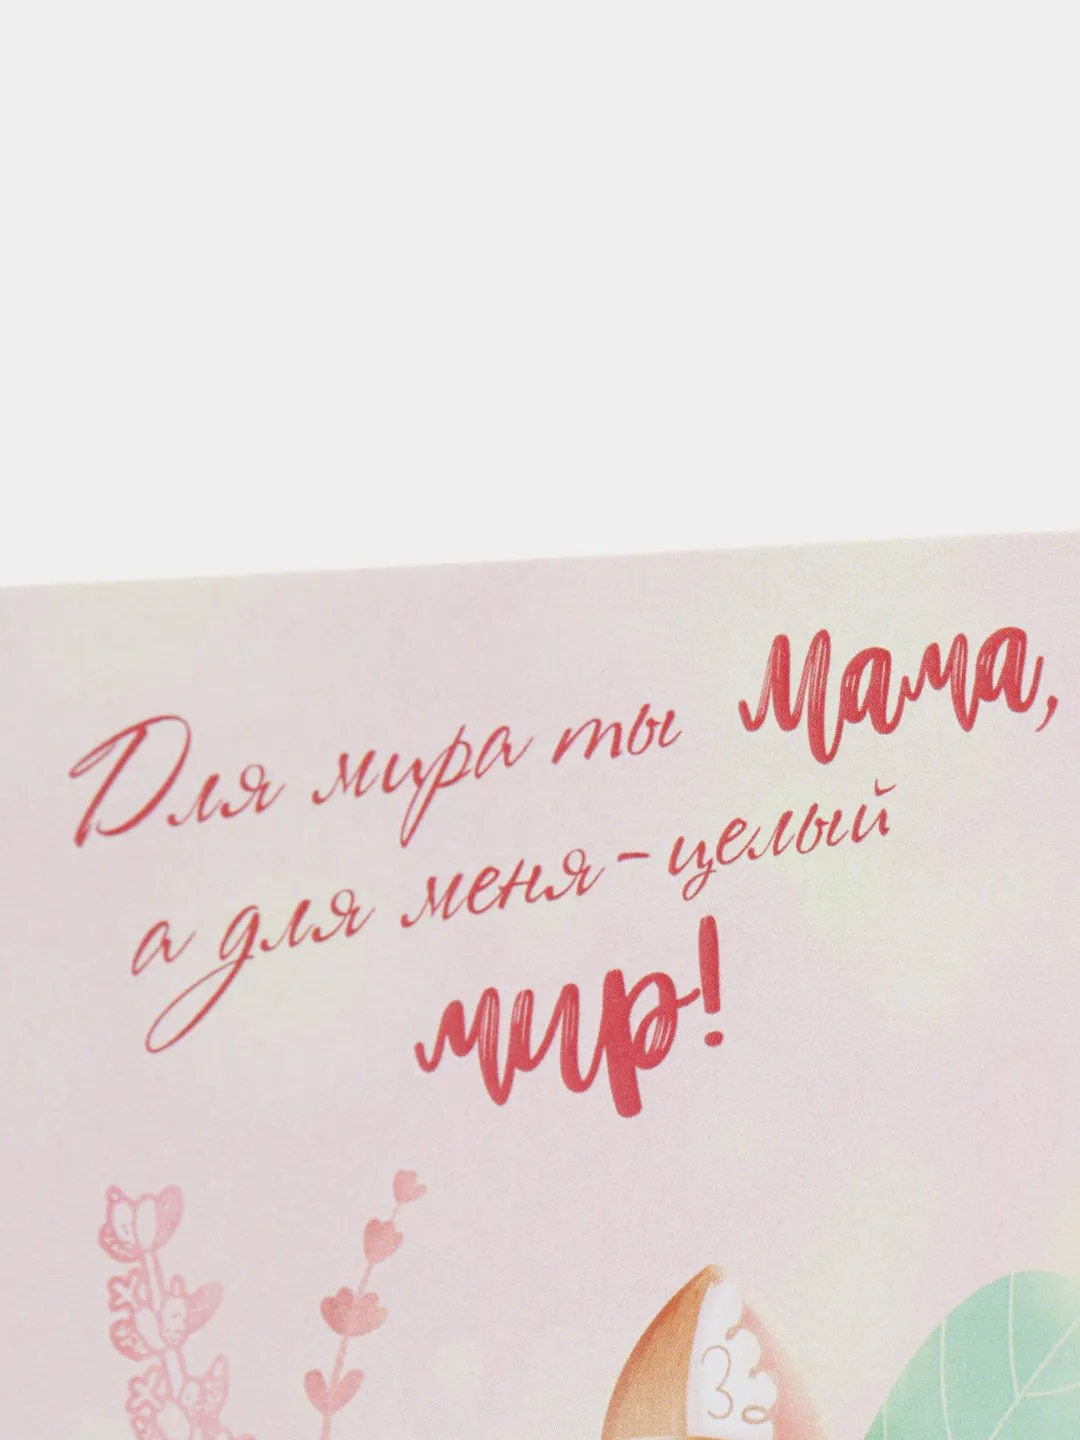 Для мира ты Мама,
а для меня - целый
мир!